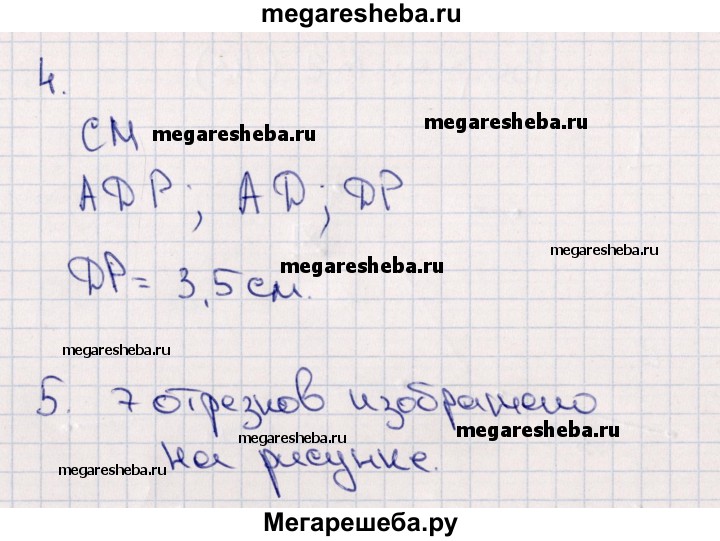 megaresheba.ru
4.
СМ megaresheba.ru
megaresheba.ru
АДР; АД; ДР
megaresheba.ru
ДР = 3,5 см. megaresheba.ru
megaresheba.ru
5. 7 отрезков изображено
megaresheba.ru
на рисунке. megaresheba.ru
megaresheba.ru
Мегарешеба.ру